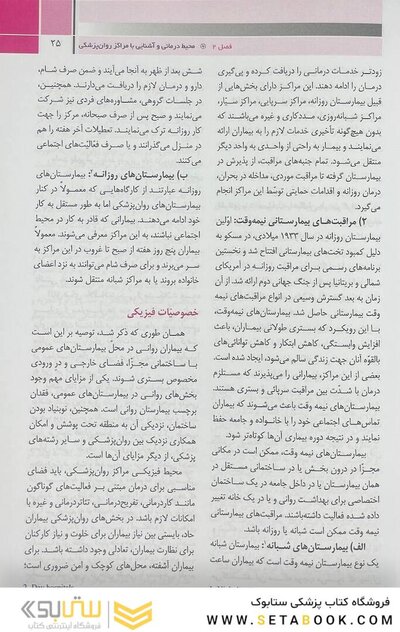 فصل ۲ محیط درمانی و آشنایی با مراکز روان‌پزشکی
۲۵
زودتر خدمات درمانی را دریافت کرده و پی‌گیری
درمان را ادامه دهند. این مراکز دارای بخش‌هایی از
قبیل بیمارستان روزانه، مراکز سرپایی، مراکز سیّار،
مراکز شبانه‌روزی، مددکاری و غیره می‌باشند که
بدون هیچ‌گونه تأخیری خدمات لازم را به بیماران ارائه
می‌نمایند و بیمار به راحتی از واحدی به واحد دیگر
منتقل می‌شود. تمام جنبه‌های مراقبت، از پذیرش در
بیمارستان گرفته تا مراقبت موردی، مداخله در بحران،
درمان روزانه و اقدامات حمایتی توسّط این مراکز انجام
می‌گیرد.
۲) مراقبت‌های بیمارستانی نیمه‌وقت: اوّلین
بیمارستان روزانه در سال ۱۹۳۳ میلادی، در مسکو به
دلیل کمبود تخت‌های بیمارستانی افتتاح شد و نخستین
برنامه‌های رسمی برای مراقبت روزانه در آمریکای
شمالی و بریتانیا پس از جنگ جهانی دوم ارائه شد. از آن
زمان به بعد گسترش وسیعی در انواع مراقبت‌های نیمه
وقت بیمارستانی حاصل شد. بیمارستان‌های نیمه‌وقت،
با این رویکرد که بستری طولانی بیماران، باعث
افزایش وابستگی، کاهش ابتکار و کاهش توانائی‌های
بالقوّه آنان جهت زندگی سالم می‌شود، ایجاد شده است.
بعضی از این مراکز، بیمارانی را می‌پذیرند که مستلزم
درمان با شدّت بین مراقبت سرپایی و بستری هستند.
بیمارستان‌های نیمه وقت باعث می‌شوند که بیماران
تماس‌های اجتماعی خود را با خانواده و جامعه حفظ
نمایند و در نتیجه دوره بیماری آن‌ها کوتاه‌تر شود.
بیمارستان‌های نیمه وقت، ممکن است در مکانی
مجزّا در درون بخش یا در ساختمانی مستقل در
همان بیمارستان یا در داخل جامعه در یک ساختمان
اختصاصی برای بهداشت روانی و یا در یک خانه تغییر
داده شده فعالیت داشته‌باشند. مراقبت‌های بیمارستانی
نیمه وقت ممکن است شبانه یا روزانه باشد.
الف) بیمارستان‌های شبانه: بیمارستان شبانه
یک نوع بیمارستان نیمه وقت است که بیماران ساعت
شش بعد از ظهر به آنجا می‌آیند و ضمن صرف شام،
دارو و درمان لازم را دریافت می‌دارند. همچنین،
در جلسات گروهی، مشاوره‌های فردی نیز شرکت
می‌نمایند و صبح پس از صرف صبحانه، مرکز را جهت
کار روزانه ترک می‌نمایند. تعطیلات آخر هفته را هم
در منزل می‌گذرانند و یا صرف فعّالیّت‌های اجتماعی
می‌کنند.
ب) بیمارستان‌های روزانه۲: بیمارستان‌های
روزانه عبارتند از کارگاه‌هایی که معمولاً در کنار
بیمارستان‌های روان‌پزشکی اما به طور مستقل به کار
خود ادامه می‌دهند. بیمارانی که قادر به کار در محیط
اجتماعی نباشند، به این مراکز معرفی می‌شوند. معمولاً
بیماران پنج روز هفته از صبح تا غروب در این مراکز به
سر می‌برند و برای صرف شام می‌توانند به نزد اعضای
خانواده بروند یا به مراکز شبانه منتقل شوند.
خصوصیّات فیزیکی
همان طوری که ذکر شد، توصیه بر این است
که بیماران روانی در محل بیمارستان‌های عمومی
با ساختمانی مجزّا، فضای خارجی و در ورودی
مخصوص بستری شوند. یکی از مزایای مهم وجود
بخش‌های روانی در بیمارستان‌های عمومی، فقدان
برچسب بیمارستان روانی است. همچنین، نوبنیاد بودن
ساختمان، نزدیکی آن به منطقه تحت پوشش و امکان
همکاری نزدیک بین روان‌پزشکی و سایر رشته‌های
پزشکی، از دیگر مزایای آن‌ها است.
محیط فیزیکی مراکز روان‌پزشکی، باید فضای
مناسبی برای درمان مبتنی بر فعالیت‌های گوناگون
مانند کاردرمانی، تفریح‌درمانی، تئاتردرمانی و غیره با
امکانات لازم باشد. در بخش‌های روان‌پزشکی بیماران
حاد، بایستی بین نیاز بیماران برای خلوت و نیاز کارکنان
برای نظارت بیماران، تعادلی وجود داشته باشد. برای
بیماران آشفته، محل‌های کوچک و امن ضروری است؛
2. Day hospitals
فروشگاه کتاب پزشکی ستابوک
WWW.SETABOOK.COM
ستابوک
فروشگاه اینترنتی کتاب